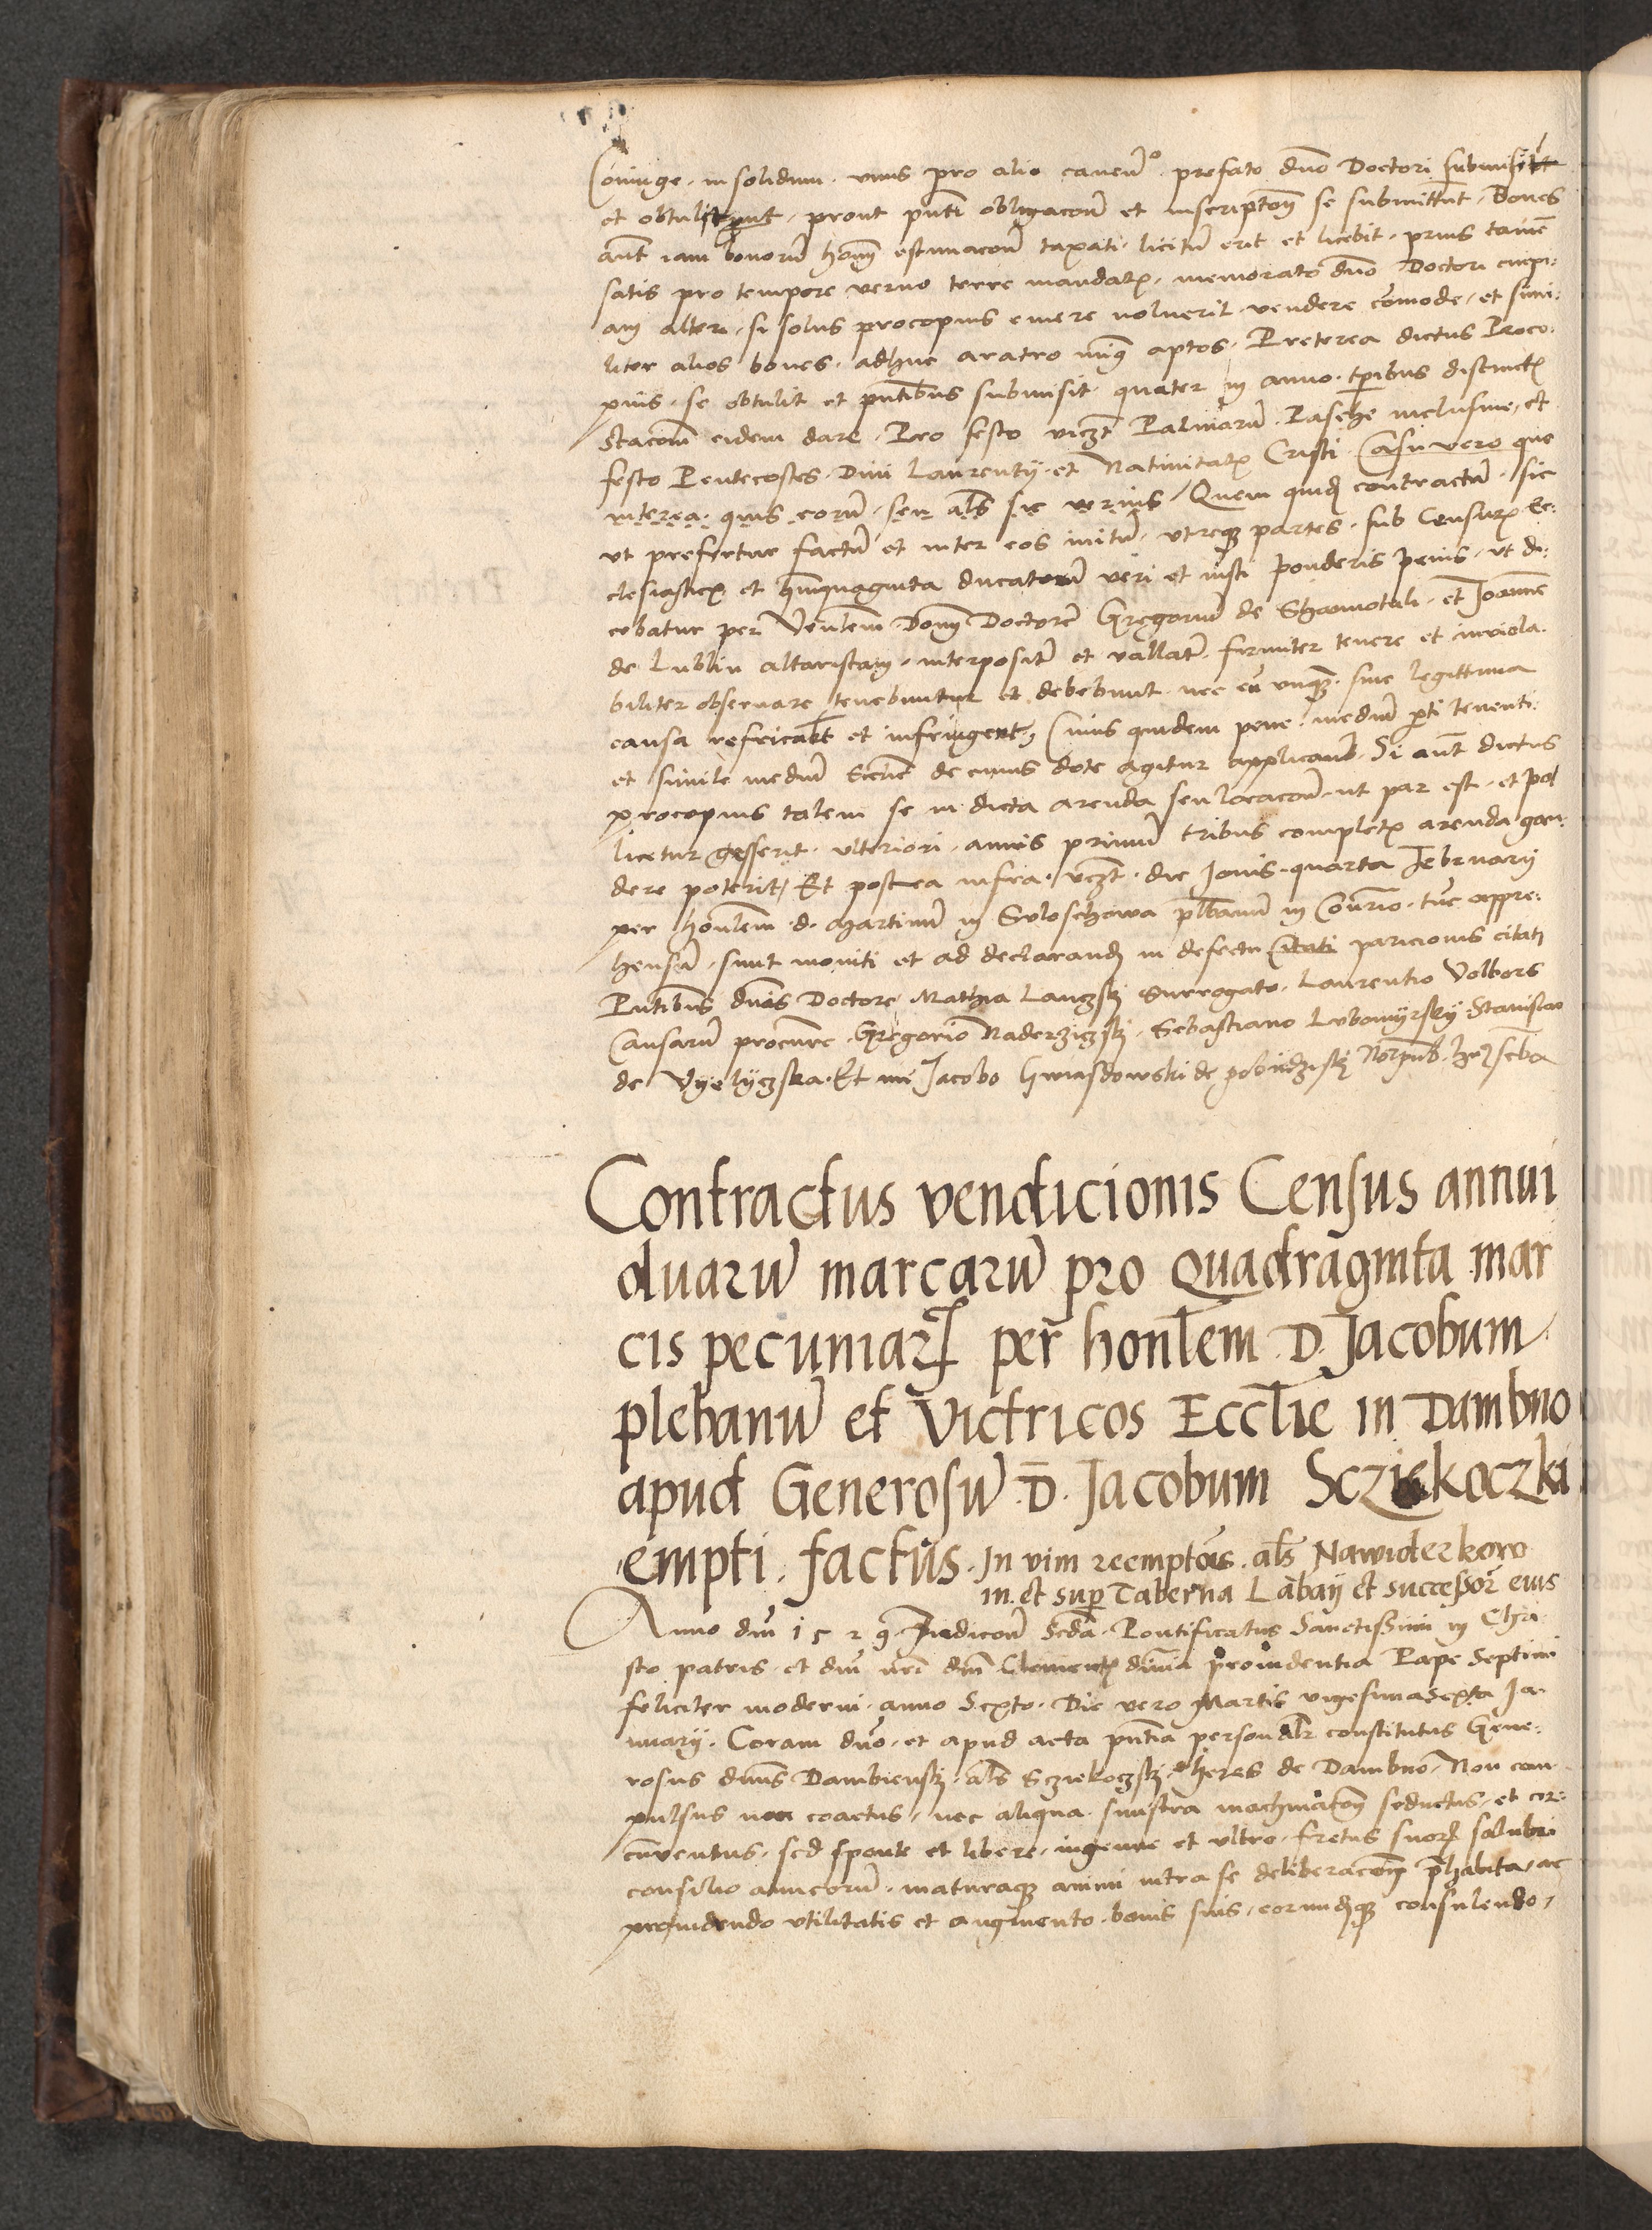 Coniuge in solidum vnus pro alio cauen° prefato dno Doctori submisit
et obtulit prout pnti obligaconi et inscriptom se submittunt. Boues
aut iam bonorum homi estimacom taxati licitu erit et licebit prius tamen
satis pro tempore verno terre mandatis memorato dno Doctori cuipi:
am alteri, si solus procopius emere noluerit vendere comode, et simi:
liter alios boues adhuc aratro aptos. Preterea dictus Proco:
pius se obtulit et pntibus submisit quater in anno tpibus distinctis
Stacom eidem dare. Pro festo viczt Palmarum Pasche inclusiue, et
festo Pentecostes Diui Laurentij et Natiuitatis Cristi. Casu vero que
interea quis eorum seu als sic verius. Quem quidem contractum sic
vt prefertur factum et inter eos initum vtreque partes sub Censuris Ec:
clesiasticis et quinquaginta ducatorum veri et iusti ponderis penis, vt di:
cebatur per Venlem Dom Doctorem Gregorium de Schamotuli et Joannem
de Lublin altaristam, interpositum et vallatum firmiter tenere et inviola.
biliter obseruare tenebuntur et debebunt nec eum vnquam sine legittima
causa refricabt et infringent, Cuius quidem pene medium pti tenenti
et simile medium de cuius dote agitur applicand. Si aut dictus
procopius talem se in dicta arenda seu locacom vt par est et pol
licetur gesserit vlteriori annis primum tribus completis arenda gau:
dere poterit. Et postea infra vczt die Jouis quarta Februarij
per honlem d. Martinum in Suloschowa plbanum in tuc appre:
hensum sunt moniti et ad declarand in defectu paricionis citati
Pntibus dnis Doctore Mathia Lanczski Surrogato, Laurentio Volbors
Causarum procure Gregorio Naderziczski Sebastiano Lubomyrsky Stanislao
de Vyelyczska. Et me Jacobo Gwiasdowski de pobiedziski
Contractus vendicionis Census annui
duarum marcarum pro Quadraginta mar
cis pecuniar per honlem D. Jacobum
plebanum et Victricos Ecclie in Dambno
apud Generosum D. Jacobum Scziekoczki
empti. factus. In vim reemptois als Nawiderkow
in et sup Taberna Labay et successor eius
Anno dni 1529 Indicom Scda Pontificatus Sanctissimi in Chri
sto patris et dni nri dni Clementis diuina prouidentia Pape Septimi
feliciter moderni anno Sexto. Die vero Martis vigesimasexta Ja
nuarij. Coram dno et apud acta pntia personalr constitutus Gene:
rosus dnus Dambienski als Scziekoczski heres de Dambno. Non com
pulsus non coactus, nec aliqua sinistra machinacom seductus, et cir:
cuuentus, sed sponte et libere, ingenue et vltro, fretus suor salubri
consilio amicorum, maturaque animi intra se deliberacom phabita, ac
prouidendo vtilitatis et augmento bonis suis, eorundque consulendo,